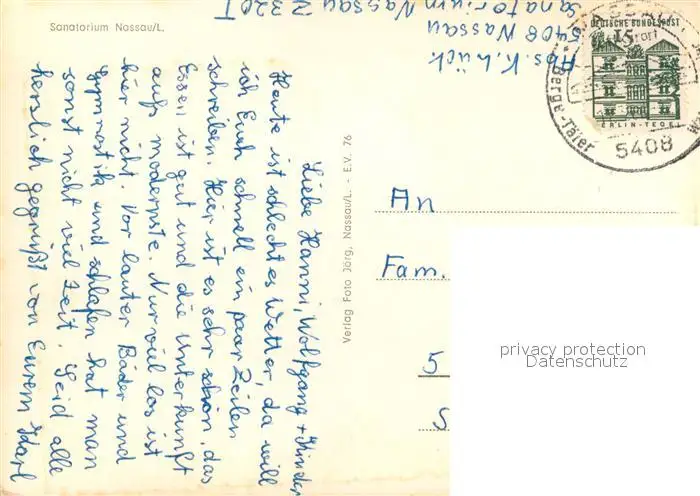 Sanatorium Nassau/L.
Abs. K. Lück
5408 Nassau
Sanatorium Nassau Z 320 I
Liebe Hanni, Wolfgang + Kinder
Heute ist schlechtes Wetter, da will
ich Euch schnell ein paar Zeilen
schreiben. Hier ist es sehr schön, das
Essen ist gut und die Unterkunft
aufs modernste. Nur viel los ist
hier nicht. Vor lauter Bäder und
Gymnastik und schlafen hat man
sonst nicht viel Zeit. Seid alle
herzlich gegrüßt von Eurem Karl
Verlag Foto Jörg, Nassau/L. - E.V. 76
DEUTSCHE BUNDESPOST
15
BERLIN-TEGEL
5408
An
Fam.
5
S
privacy protection
Datenschutz